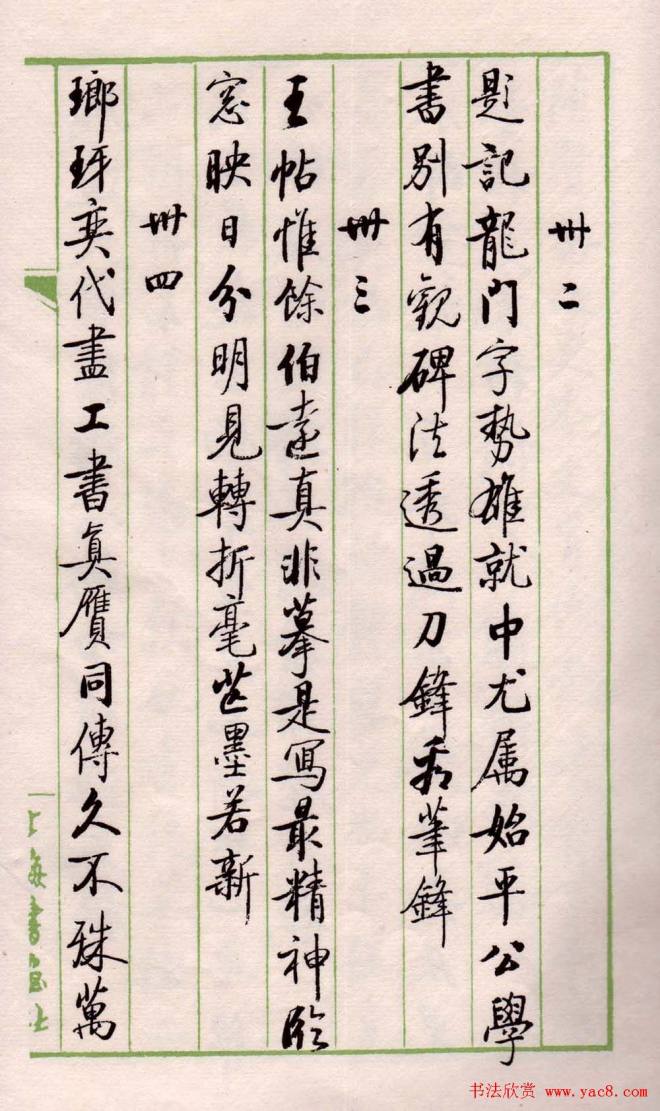 卅二
題記龍門字勢雄就中尤属始平公學
書别有觀碑法透過刀鋒看筆鋒
卅三
王帖惟餘伯遠真非摹是寫最精神臨
窓映日分明見轉折毫芒墨若新
卅四
瑯琊奕代盡工書真贋同傳久不殊萬
上海書画社
书法欣赏 www.yac8.com